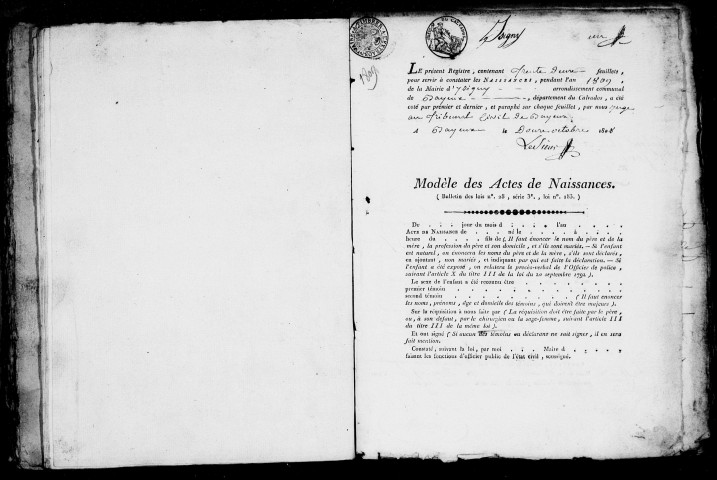 Isigny
1809
LE présent Registre, contenant trente Deux feuillets,
pour servir à constater les NAISSANCES, pendant l'an 1809,
de la Mairie d'ysigny arrondissement communal
de Bayeux, département du Calvados, a été
coté par premier et dernier, et paraphé sur chaque feuillet, par nous juge
au tribunal Civil de Bayeux
A Bayeux le Douze octobre 1808
Modèle des Actes de Naissances.
( Bulletin des lois n°. 28, série 3e., loi n°. 185. )
Du . . . jour du mois d . . . . l'an . . . .
ACTE DE NAISSANCE de . . . . né le . . . . à . . . .
heure du . . . . fils de ( Il faut énoncer le nom du père et de la
mère, la profession du père et son domicile, et s'ils sont mariés. — Si l'enfant
est naturel, on énoncera les noms du père et de la mère, s'ils sont déclarés,
en ajoutant, non mariés, et indiquant par qui est faite la déclaration. — Si
l'enfant a été exposé, on relatera le procès-verbal de l'Officier de police,
suivant l'article X du titre III de la loi du 20 septembre 1792 ).
Le sexe de l'enfant a été reconnu être . . . . . .
premier témoin . . . . . . . . . .
second témoin . . . . . . . . ( Il faut énoncer
les noms, prénoms, âge et domicile des témoins, qui doivent être majeurs ).
Sur la réquisition à nous faite par ( La réquisition doit être faite par le père,
ou, à son défaut, par le chirurgien ou la sage-femme, suivant l'article III
du titre III de la même loi ).
Et ont signé ( Si aucun des témoins ou déclarans ne sait signer, il en sera
fait mention.
Constaté, suivant la loi, par moi . . . Maire d . . . . .
faisant les fonctions d'officier public de l'état civil, soussigné.